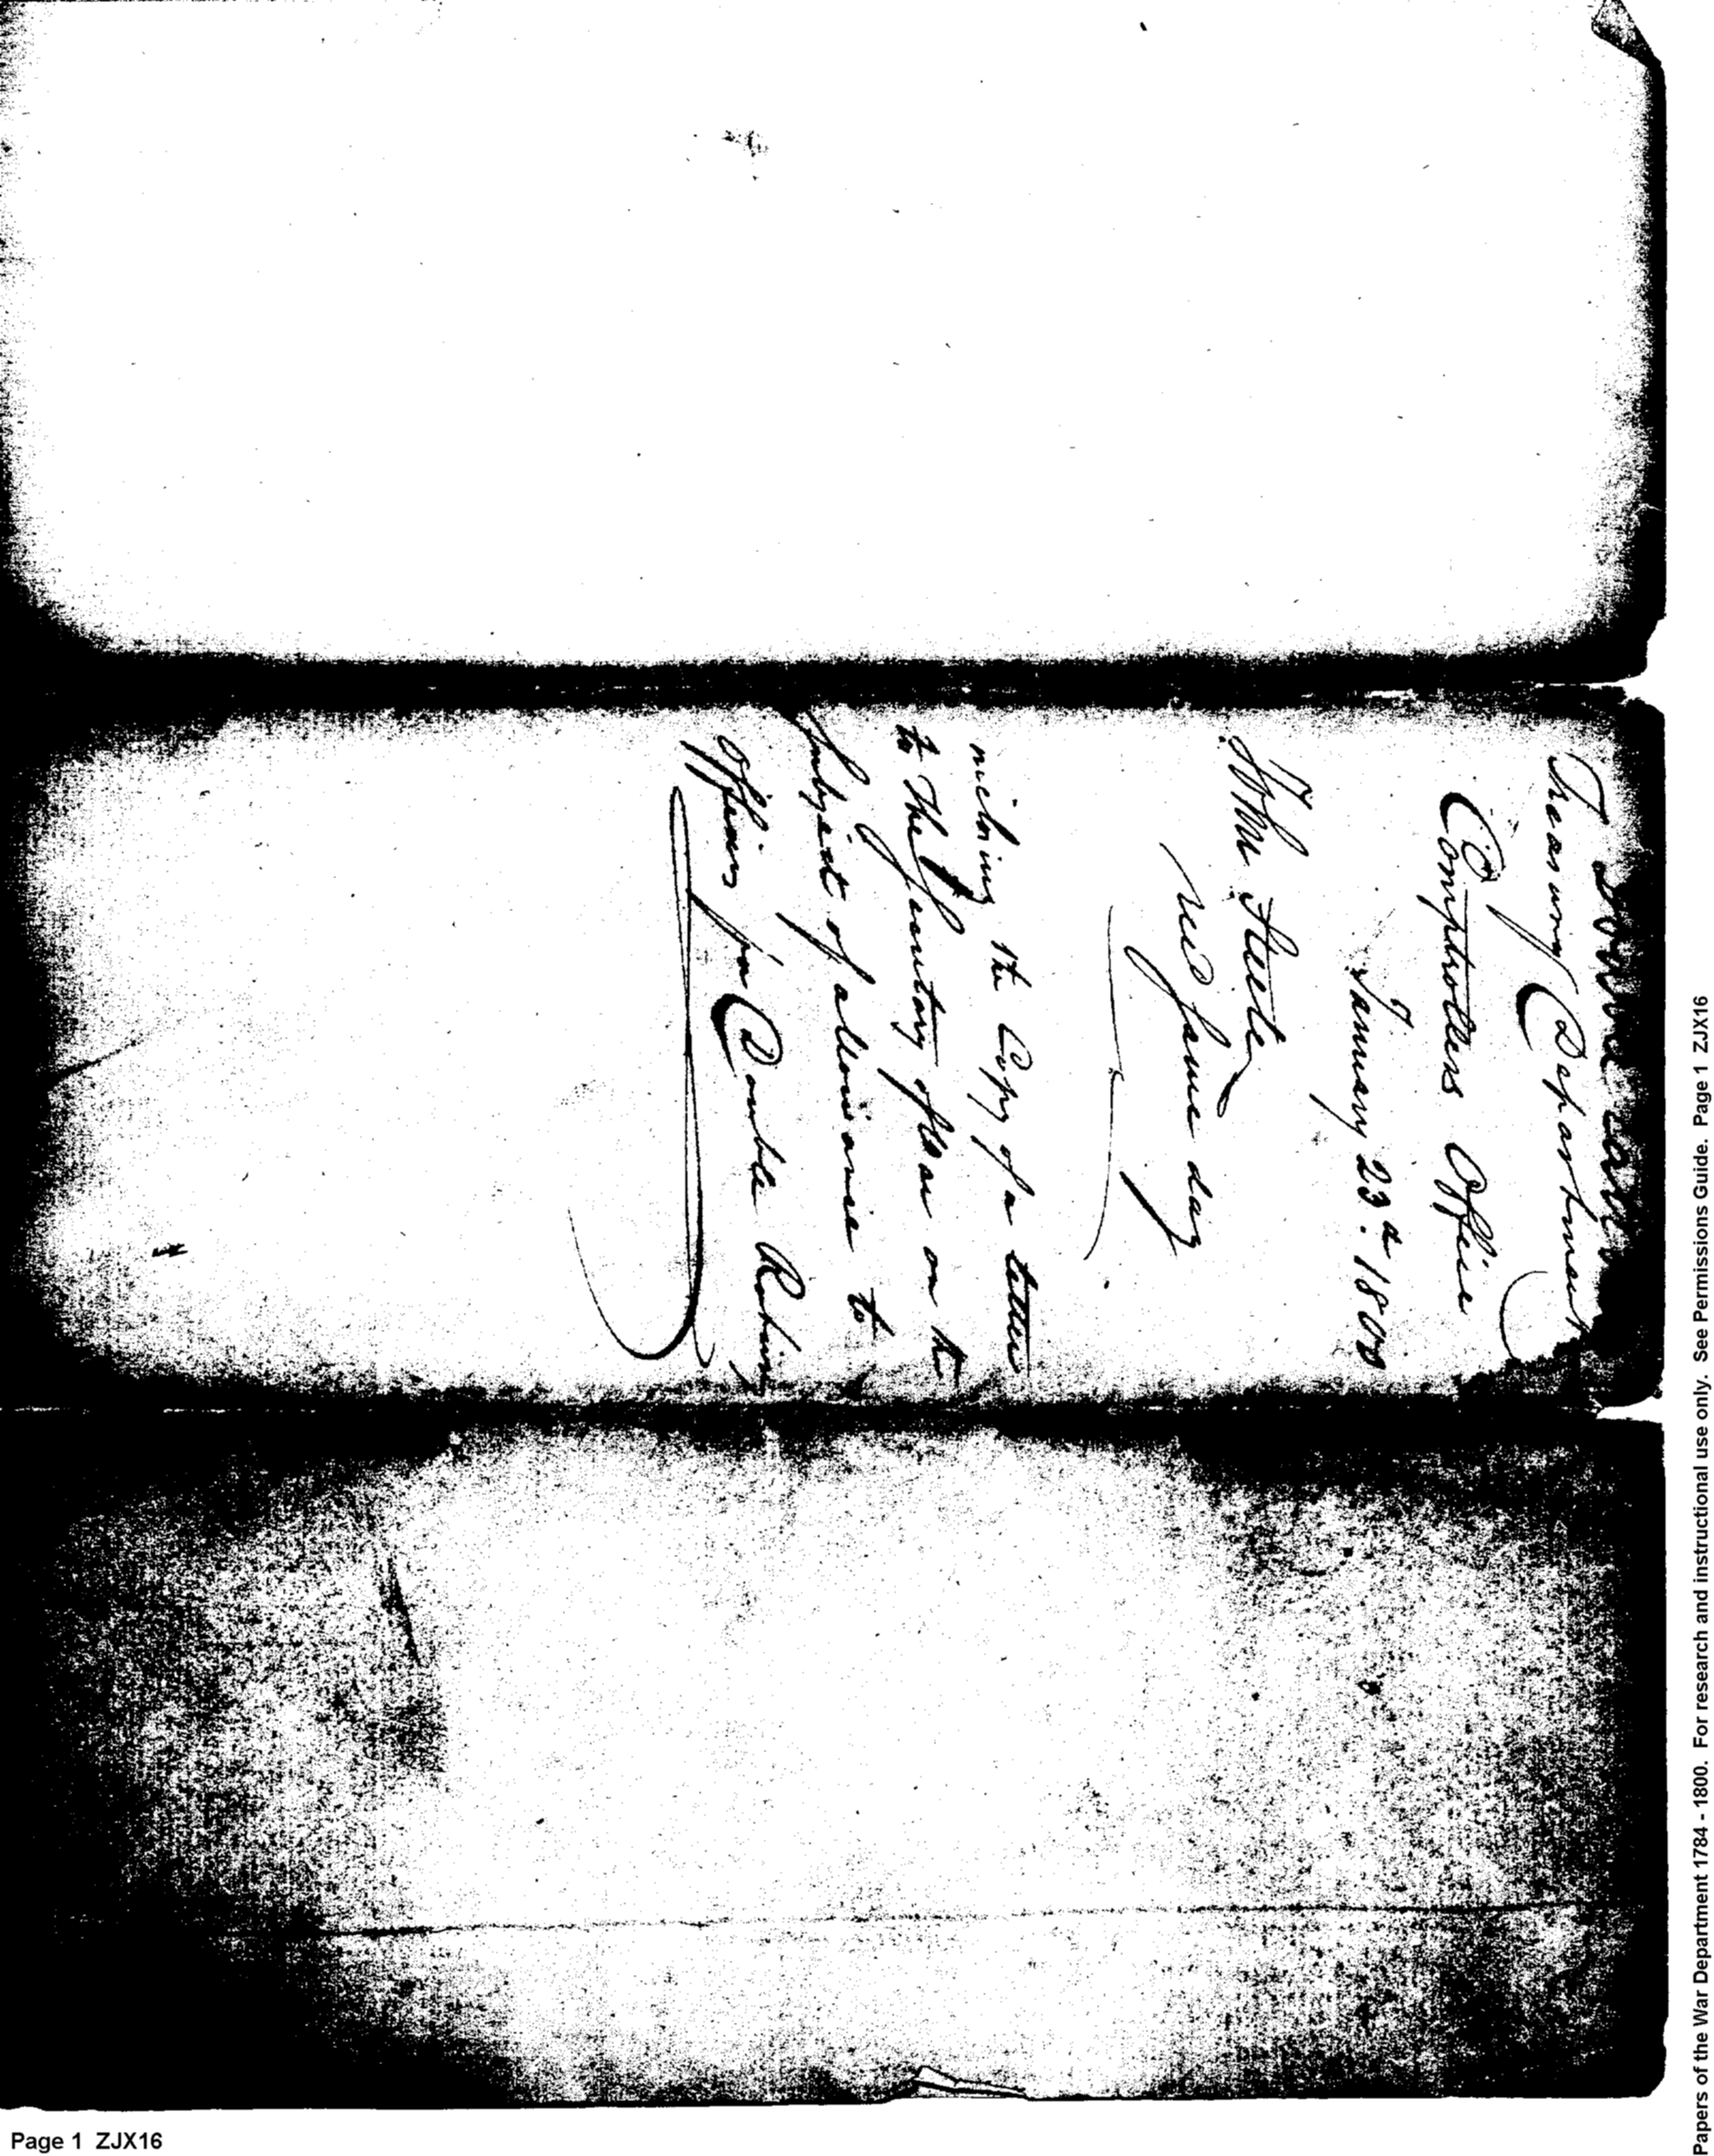 Treasury Department
Comptrollers Office
January 23d. 1800
John Steele
recd same day
inclosing the Copy of a letter
to the Secretary of War on the
subject of allowance to
officers for Double Rations
Papers of the War Department 1784 - 1800. For research and instructional use only. See Permissions Guide. Page 1 ZJX16
Page 1 ZJX16